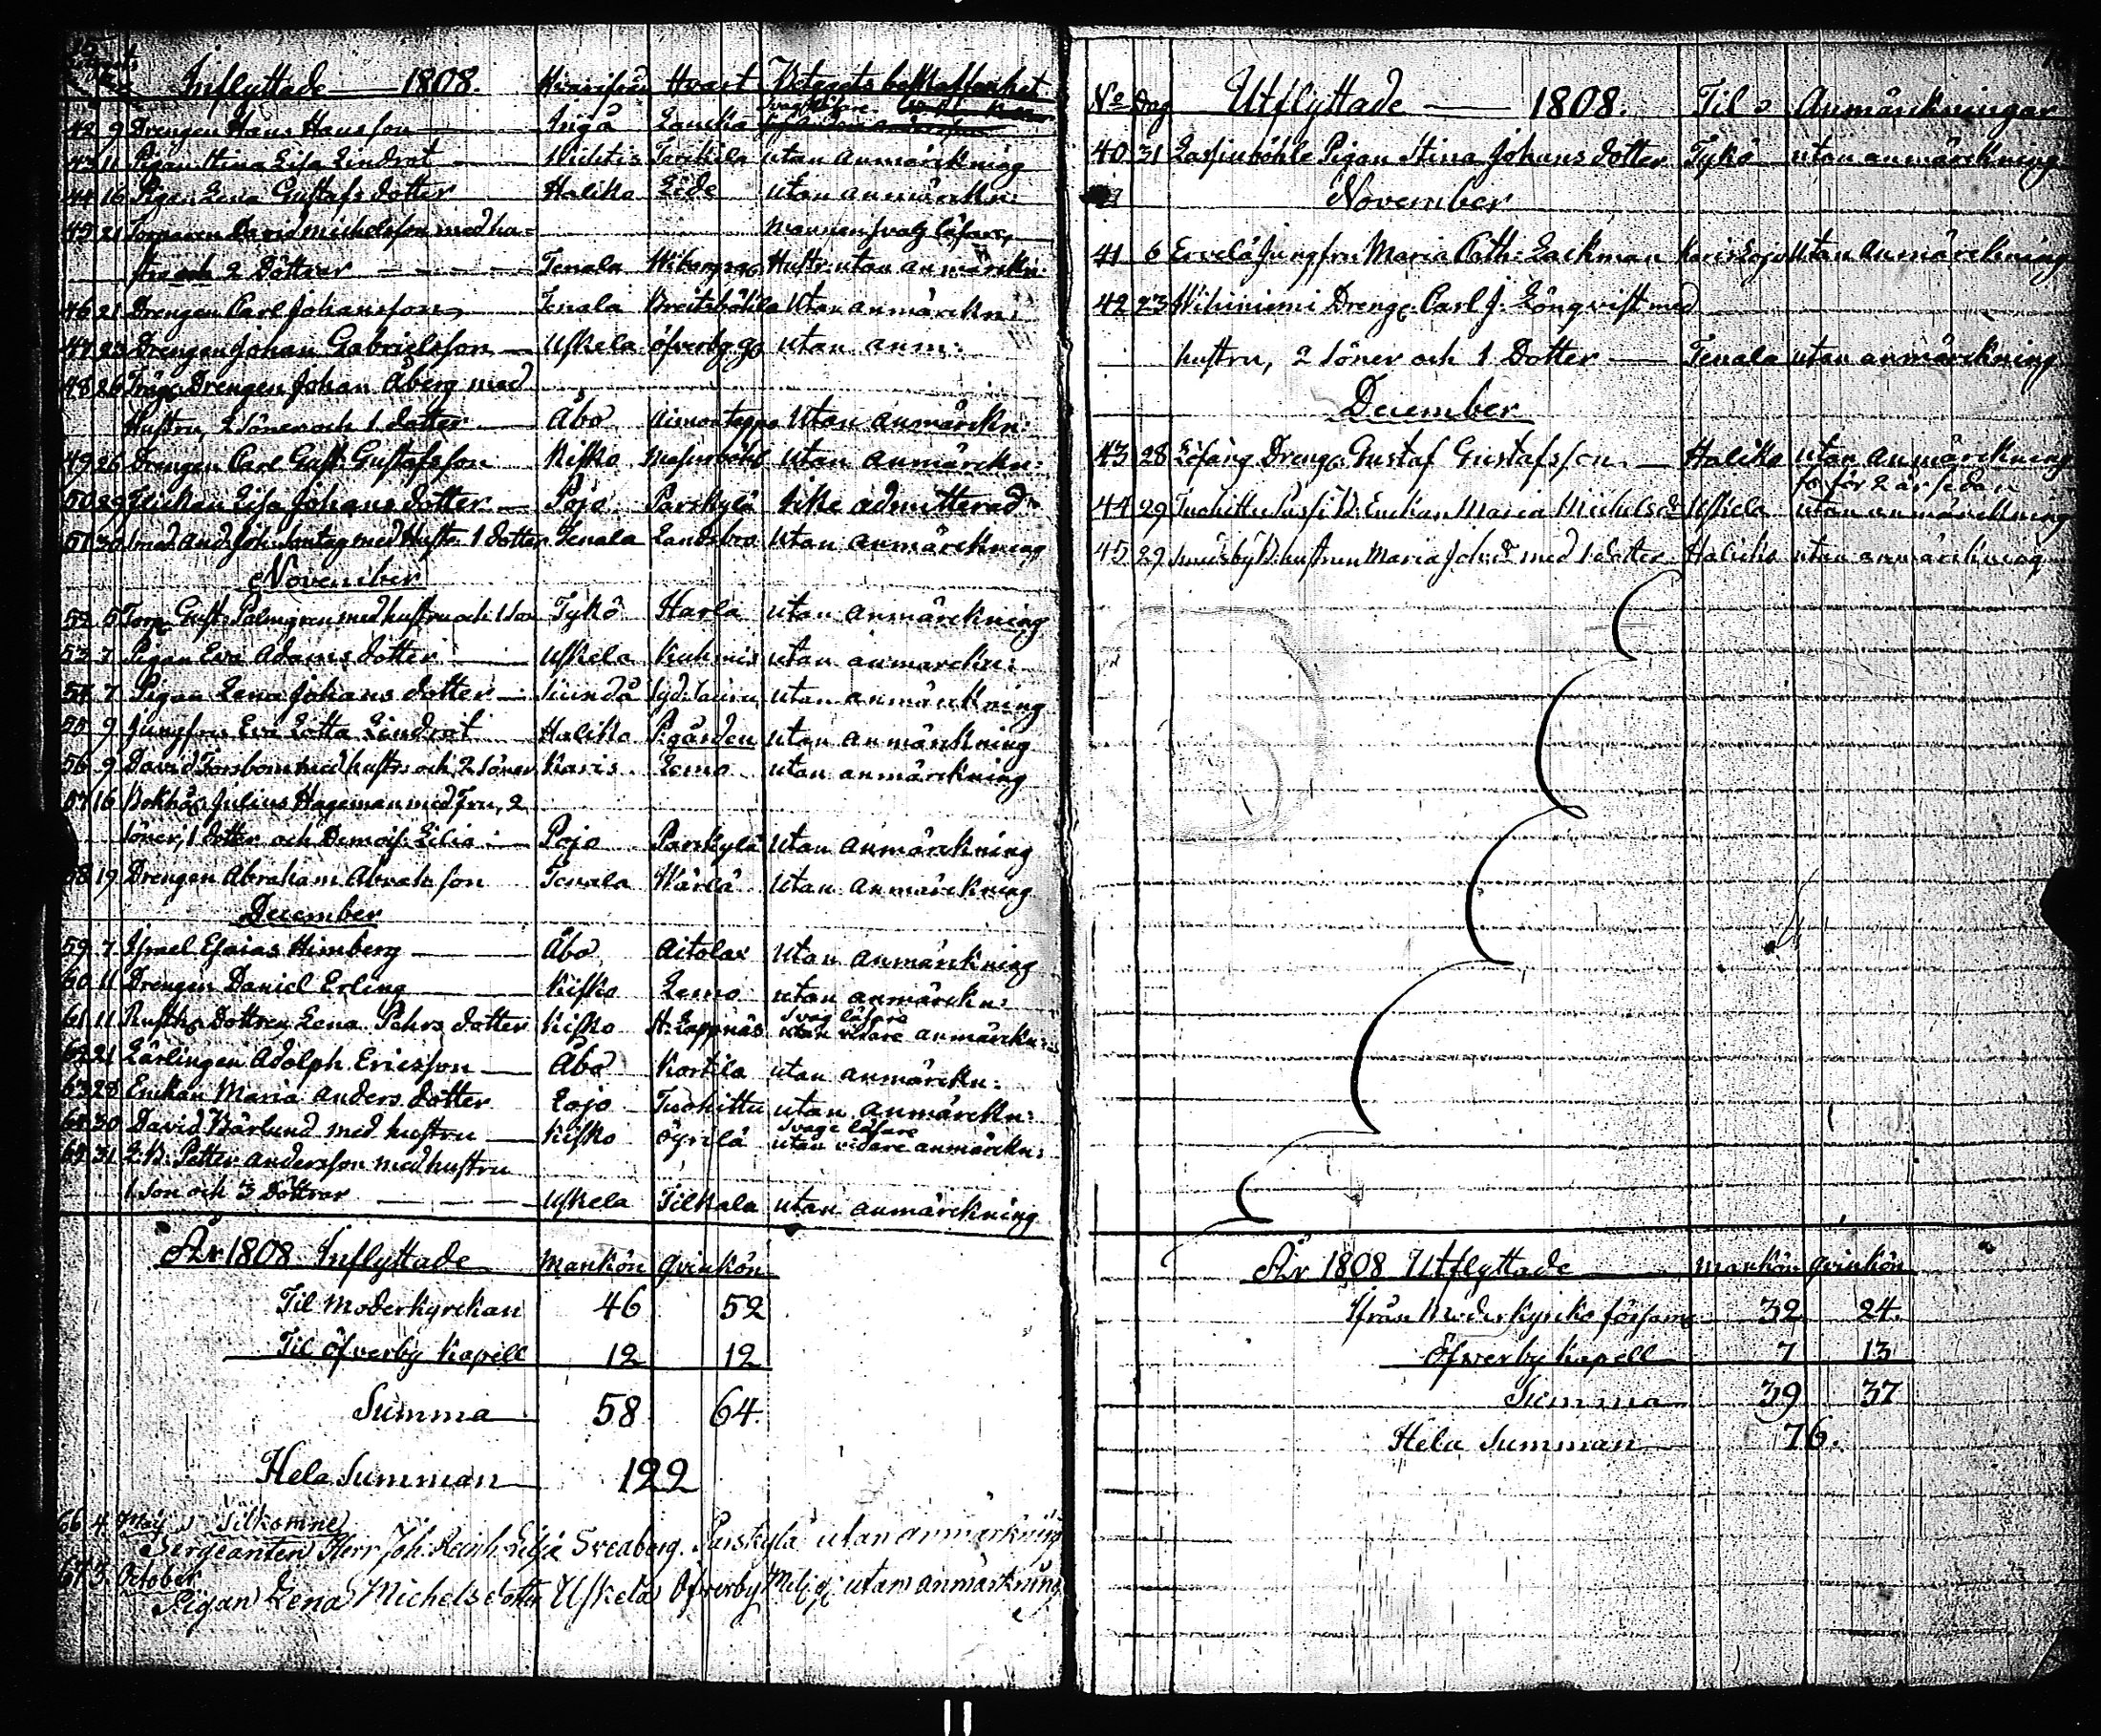 Inflyttade — 1808. Hvarifrån Hvart Betygets beskaffenhet
42 9 Drengen Hans Hansson — Ingå Lancka Svag läsare
43 11 Pigan Stina Lisa Lindrot — Wichtis Tarckila utan anmärckning
44 16 Pigan Lena Gustafs dotter Haliko Lide utan anmärckn:
45 21 Torparen David Michelsson med hu- Mannen svag läsare,
stru och 2 Döttrar — Tenala Hustr: utan anmärckn:
46 21 Drengen Carl Johansson Tenala Bredsböhle utan anmärckn:
47 23 Drengen Johan Gabrielsson — Uskela öfverby gd utan anm:
48 26 Trägs Drengen Johan Åberg med
Hustru, 2 Söner och 1 dotter — Åbo utan anmärckn:
49 26 Drengen Carl Gust: Gustafsson Kisko Masurböhl utan anmärckn:
50 29 Flickan Lisa Johans dotter — Pojo Parskylä icke admitterad
51 30 Smed And: Joh: med Hustr: 1 dotter Tenala Landsbro utan anmärckning
November
52 5 Torp: Gust: Palmgren med hustru och 1 Son Tykö Harla utan anmärckning
53 7 Pigan Eva Adams dotter — Uskela Kuhmis utan anmärckn:
54 7 Pigan Lena Johans dotter — Sjundå utan anmärckning
55 9 Jungfru Eva Lotta Lindrot Haliko Pgården utan anmärckning
56 9 David Forsbom med hustru och 2 Söner Karis Lemo utan anmärckning
57 16 Bokhål: Julius Hageman med Fru, 2
Söner, 1 dotter och Demois: Lilia — Pojo Parskylä utan anmärckning
58 19 Drengen Abraham Abrahsson Tenala Wärlä utan anmärckning
December
59 7 Israel Esaias Himberg — Åbo Aitolax utan anmärckning
60 11 Drengen Daniel Erling Kisko Lemo utan anmärckn:
svag läsare
61 11 Rusth: Dottren Lena Pehrs dotter Kisko St. Lappnäs utan vidare anmärckn:
62 21 Lärlingen Adolph Ericsson — Åbo Kortila utan anmärckn:
63 28 Enckan Maria Anders dotter Lojo Tuohittu utan anmärckn:
svage läsare
64 30 David Bärlund med hustru — Kisko öyrilä utan vidare anmärckn:
65 31 L: B: Petter Andersson med hustru
1 Son och 3 Döttrar — Uskela Tilkala utan anmärckning
År 1808 Inflyttade Mankön Qvinkön
Til Moderkyrckan 46 52
Til Öfverby Kapell 12 12
Summa 58 64.
Hela Summan 122
66 4 May Tilkomne
Sergeanten Herr Joh: Reinh: Lilja Sveaborg. Parskylä utan anmärkning
67 3 October
Pigan Lena Michelsdotter Uskela Öfverby utan anmärkning
No Dag Utflyttade — 1808. Til Anmärckningar
40 31 Lassinböhle Pigan Stina Johans dotter Tykö utan anmärckning
November
41 6 Ervelä Jungfru Maria Cath: Lackman Karis Lojo utan anmärckning
42 23 Wihiniemi Dreng: Carl J: Lönqvist med
hustru, 2 Söner och 1 Dotter — Tenala utan anmärckning
December
43 28 Löfäng Dreng: Gustaf Gustafsson — Haliko utan anmärckning
för 2 år sedan
44 29 Tuohittu Enckan Maria Michelsd: Uskela utan anmärckning
45 29 hustrun Maria Joh:dr med 1 dotter Haliko utan anmärckning
År 1808 Utflyttade — Mankön Qvinkön
Ifrån Moderkyrcko församl: 32 24.
Öfverby Kapell 7 13
Summa 39 37
Hela Summan 76.